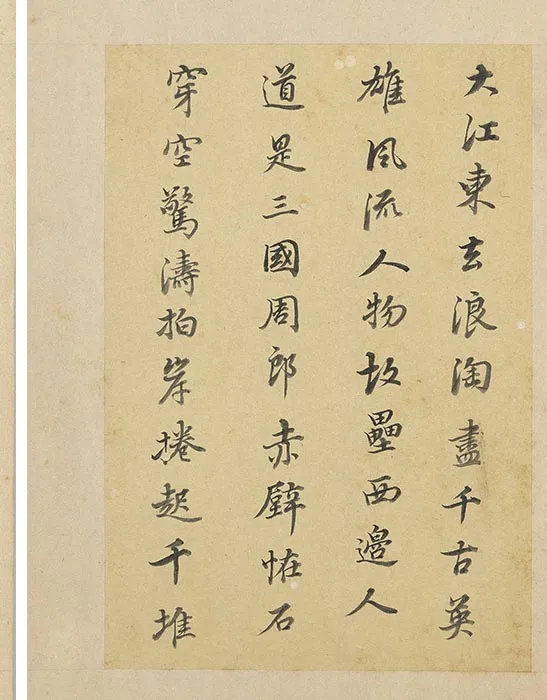 大江東去浪淘盡千古英
雄風流人物故壘西邊人
道是三國周郎赤壁恠石
穿空驚濤拍岸捲起千堆